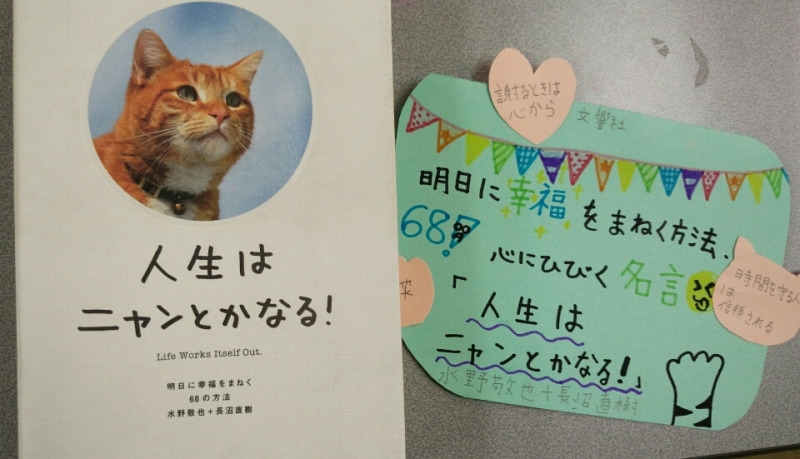 人生は
ニャンとかなる!
Life Works Itself Out.
明日に幸福をまねく
68の方法
水野敬也+長沼直樹
謝るときは
心から
文響社
明日に幸福をまねく方法.
68!
心にひびく名言
「人生は
ニャンとかなる!」
水野敬也+長沼直樹
時間を守る人
は
信頼される